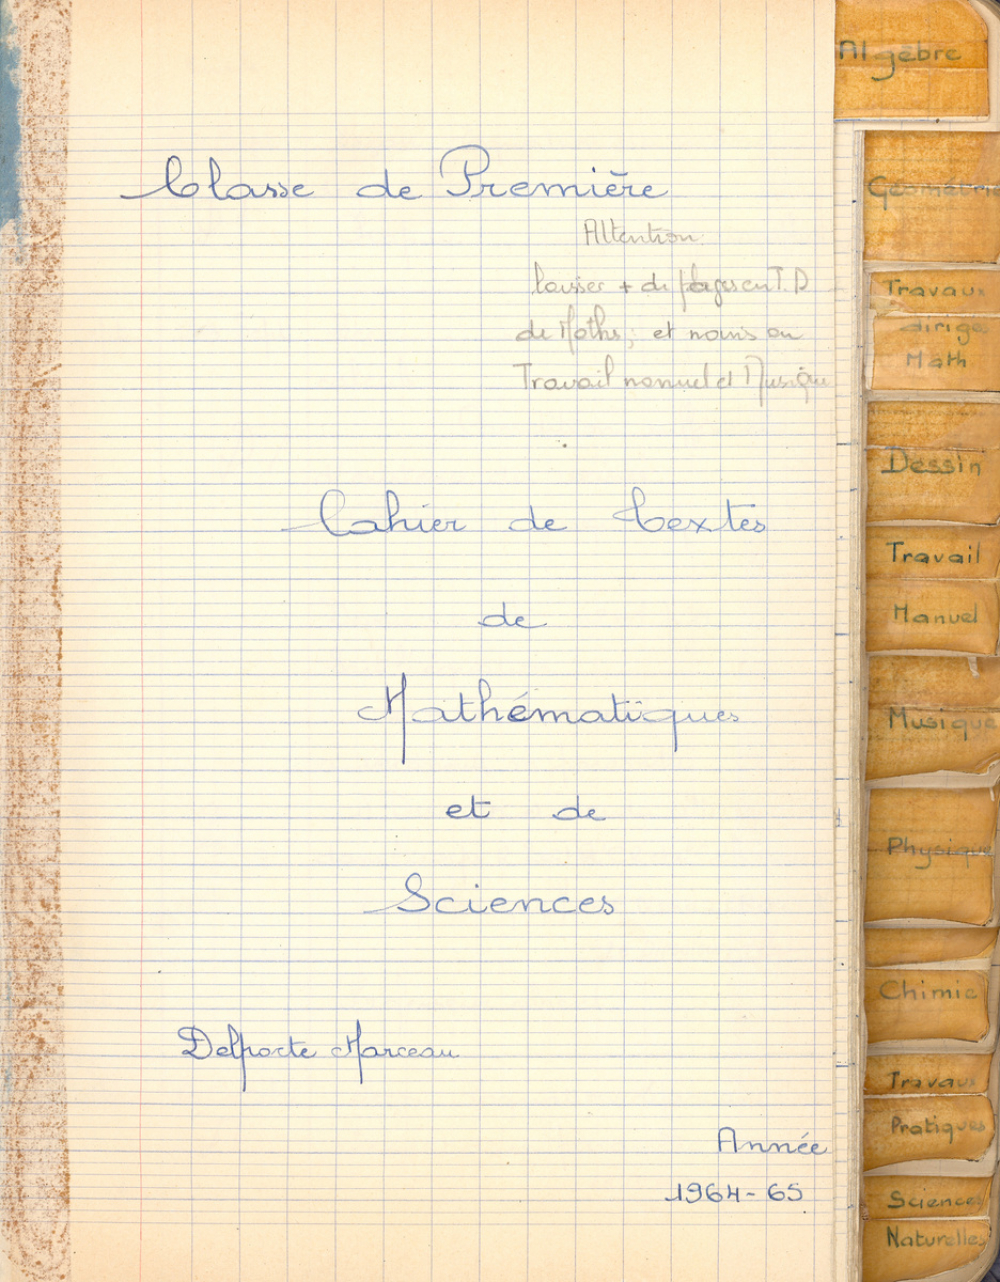 Classe de Première
Attention
laisser + de pages en T.D
de Maths, et moins en
Travail manuel et Musique
Cahier de textes
de
Mathématiques
et de
Sciences
Delporte Marceau
Année
1964-65
Algèbre
Géométrie
Travaux
dirigés
Math
Dessin
Travail
Manuel
Musique
Physique
Chimie
Travaux
Pratiques
Sciences
Naturelles